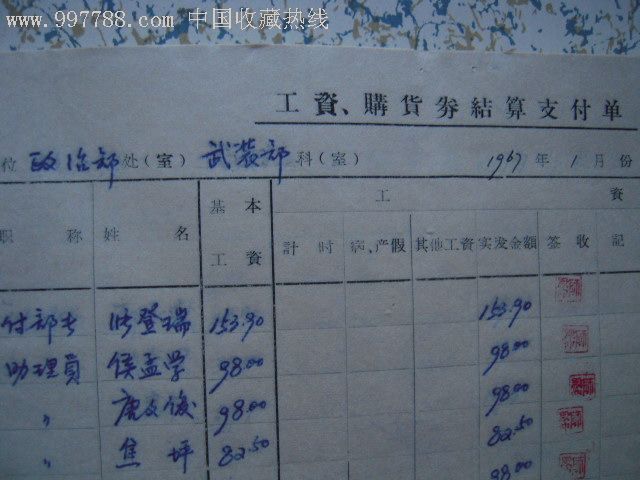 www.997788.com 中国收藏热线
工資、購货券結算支付单
位 政治部 处(室) 武装部 科(室) 1967年1月份
基本 工 資
职称 姓名 工資 計时 病、产假 其他工資 实发金額 签收 記
付部长 登瑞 153.90 153.90
助理員 侯孟学 98.00 98.00
〃 唐文俊 98.00 98.00
〃 焦坪 82.50 82.50
98.00